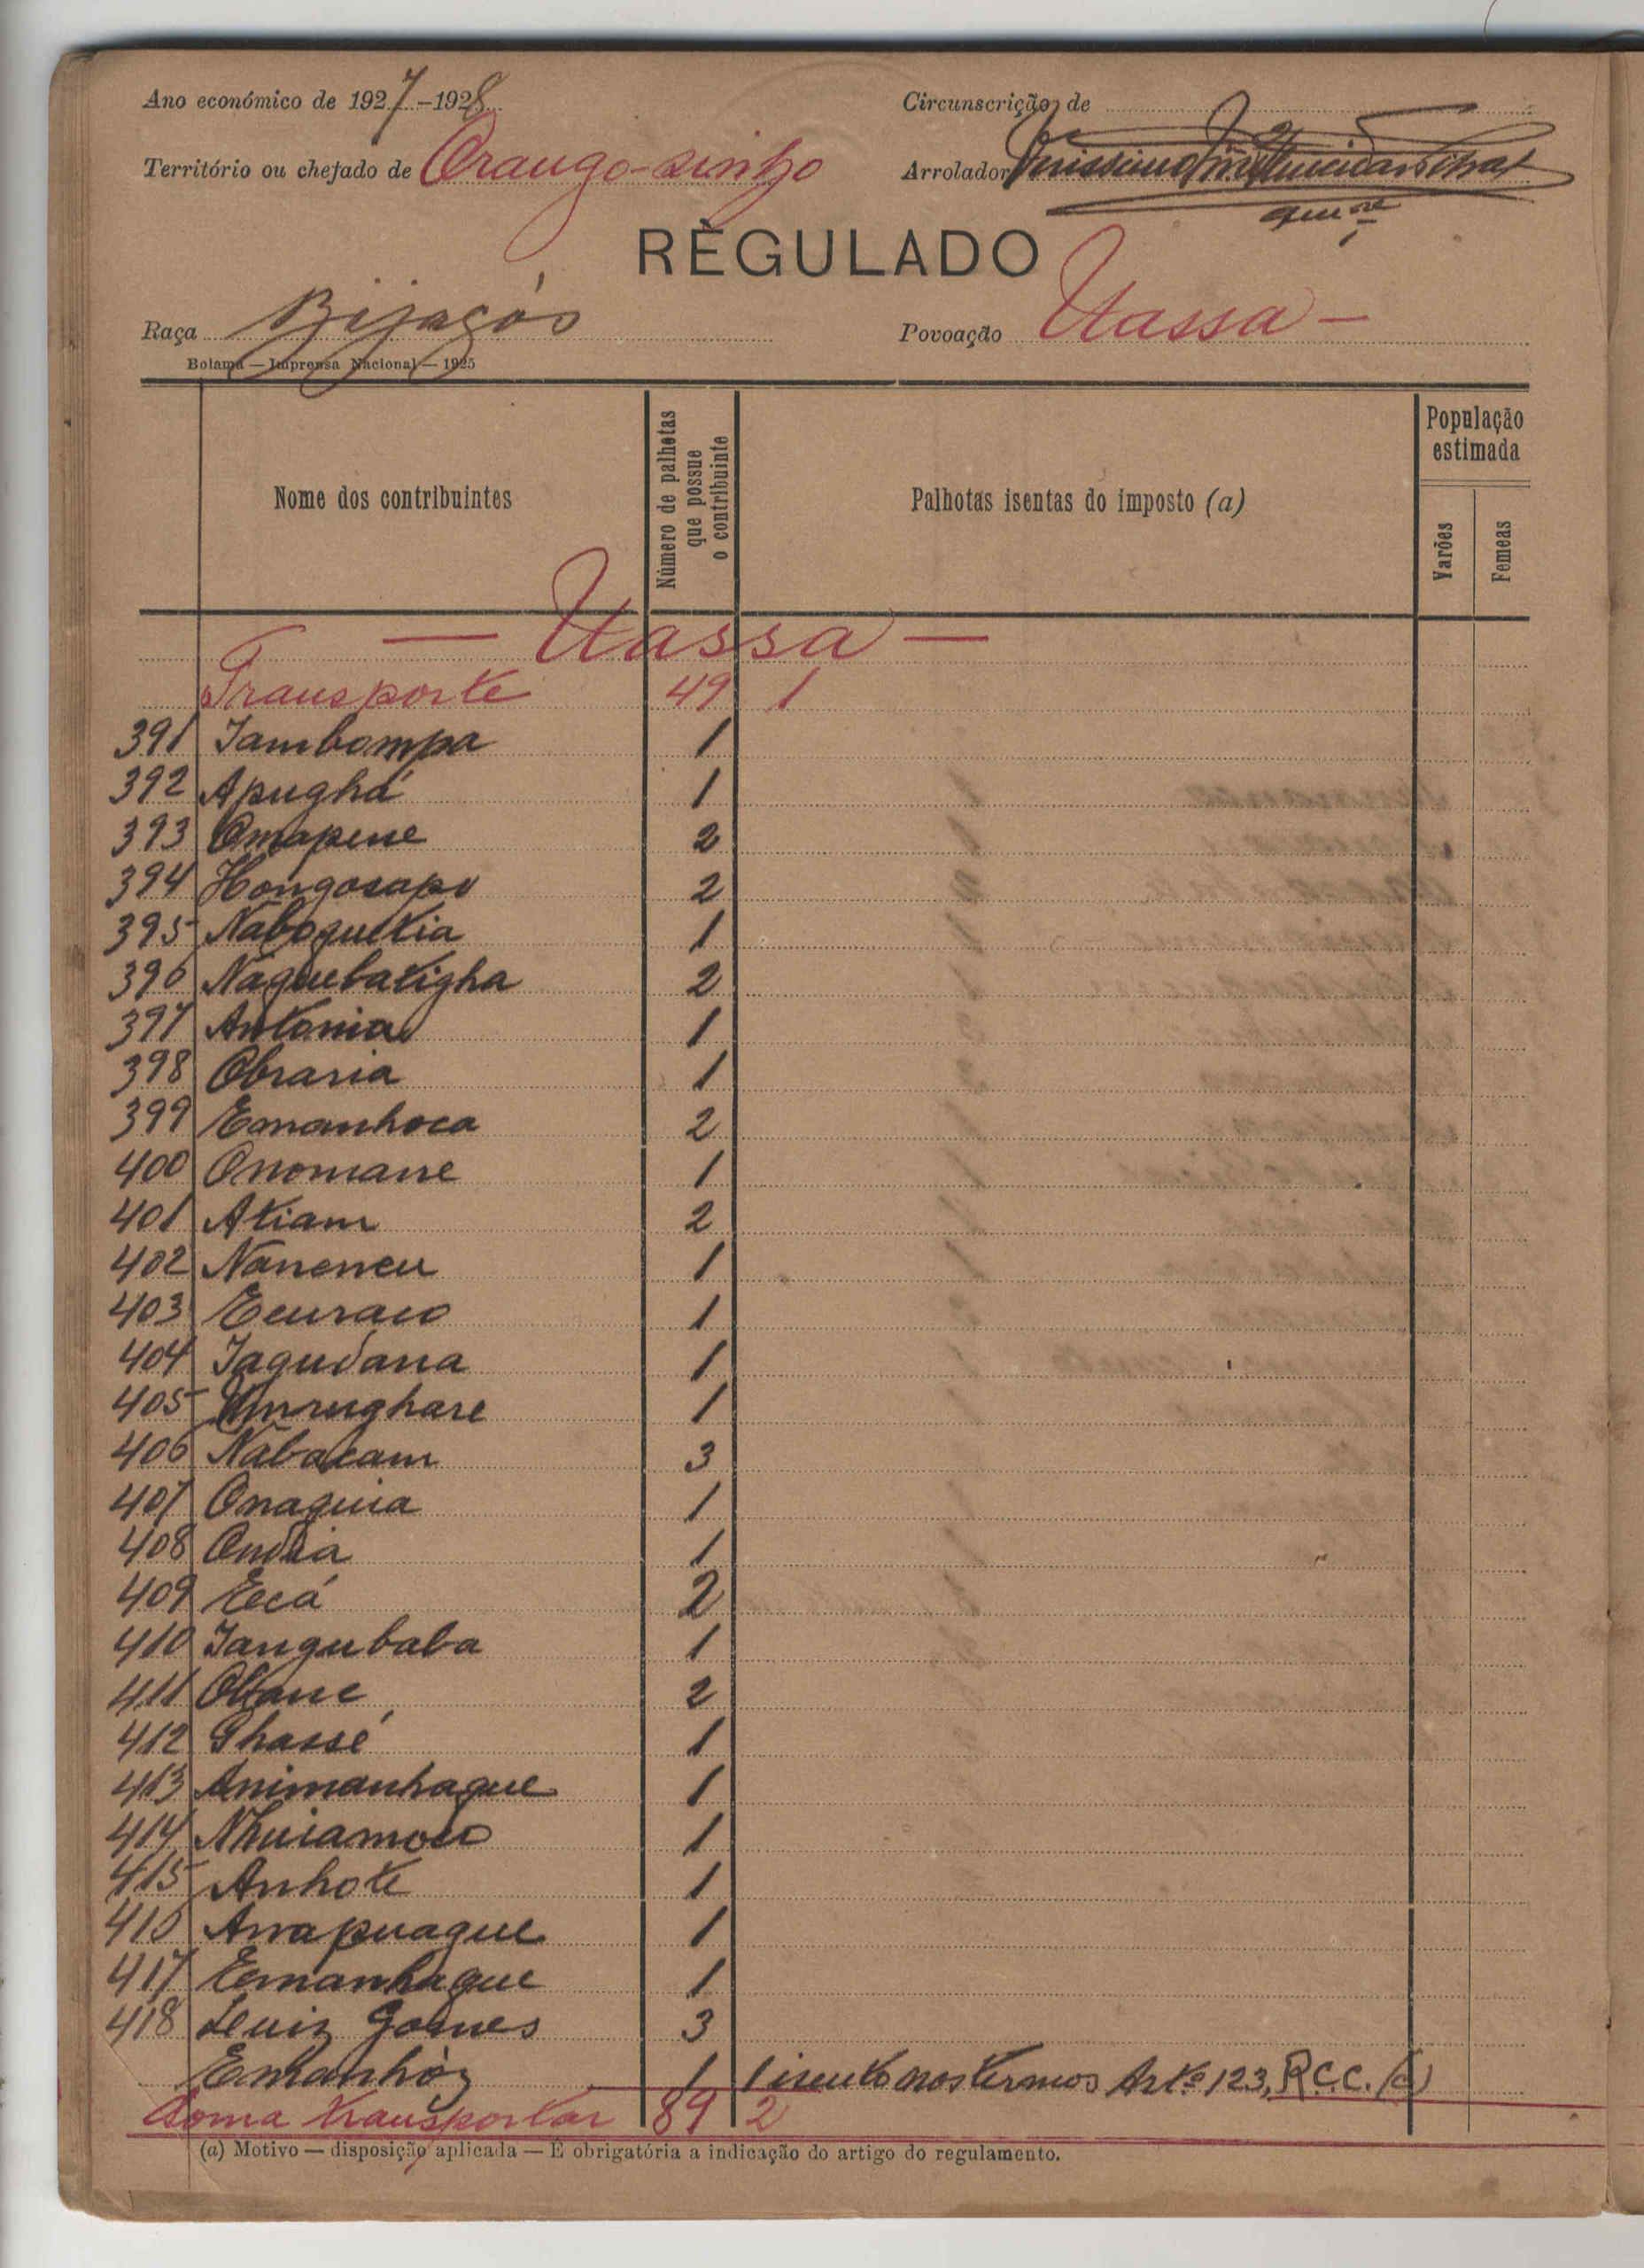 Ano económico de 1927-1928
Circunscrição de
Território ou chefado de Orango-zinho
Arrolador
REGULADO
Raça Bijagós
Povoação Uassa —
Bolama — Imprensa Nacional — 1925
Nome dos contribuintes
Número de palhotas que possue o contribuinte
Palhotas isentas do imposto (a)
População estimada
Varões
Femeas
— Uassa —
Transporte 49 1
391 Iambompa 1
392 Apughá 1
393 Omapene 2
394 Hongosapo 2
395 Naboguetia 1
396 Naguebatigha 2
397 Antonia 1
398 Obraria 1
399 Emanhoca 2
400 Onomane 1
401 Atiam 2
402 Naneneu 1
403 Ecuraco 1
404 Iagudana 1
405 Unrughare 1
406 Nabacam 3
407 Onaguia 1
408 Ondia 1
409 Ecá 2
410 Iangubaba 1
411 Obane 2
412 Ghassé 1
413 Animanhague 1
414 Nhuiamoco 1
415 Anhote 1
416 Anapuague 1
417 Emanhague 1
418 Luiz Gomes 3
Enhanhóz 1 1 isento nos termos Artº 123, R.C.C. (c)
Soma transportar 89 2
(a) Motivo — disposição aplicada — É obrigatória a indicação do artigo do regulamento.